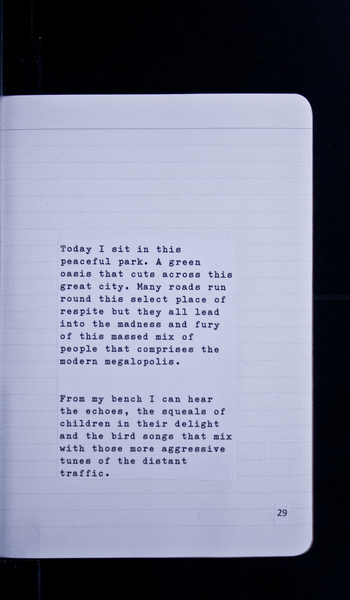 Today I sit in this
peaceful park. A green
oasis that cuts across this
great city. Many roads run
round this select place of
respite but they all lead
into the madness and fury
of this massed mix of
people that comprises the
modern megalopolis.
From my bench I can hear
the echoes, the squeals of
children in their delight
and the bird songs that mix
with those more aggressive
tunes of the distant
traffic.
29